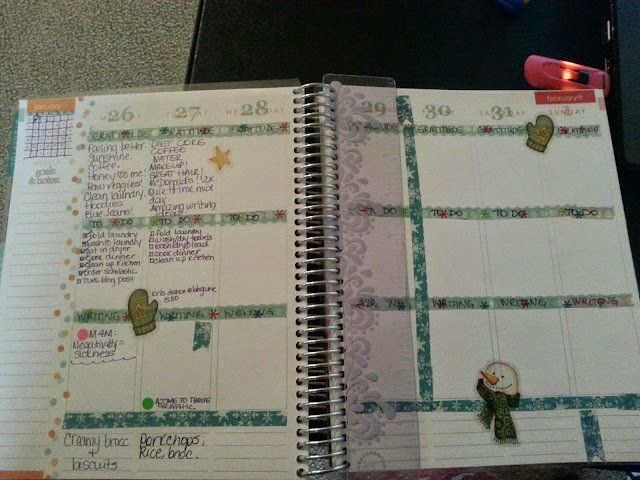 january
26
27
28
29
30
31
february
SUNDAY
goals
& notes
GRATITUDE
GRATITUDE
GRATITUDE
GRATITUDE
GRATITUDE
GRATITUDE
Feeling better.
Sunshine.
Coffee.
Honey
me!
Raw veggies!
Clean laundry.
Hoodies.
Blue Jeans!
DIET COKE
COFFEE
WATER
MAKEUP!
GREAT HAIR!
McDonald's 1/2x
Quiet time mid
day.
Amazing writing
ideas
TO DO
TO DO
TO DO
TO DO
TO DO
TO DO
TO DO
fold laundry
wash laundry
put in dryer
cook dinner
clean up kitchen
order scholastic
blog post
fold laundry
wash/dry towels
wash/dry load
cook dinner
clean up kitchen
kids dance @
530
WRITING
WRITING
WRITING
WRITING
WRITING
WRITING
M4M:
Negativity =
Sickness
A TIME TO THRIVE
GRAPHIC
Creamy broc
+
biscuits
Porkchops,
Rice, broc.